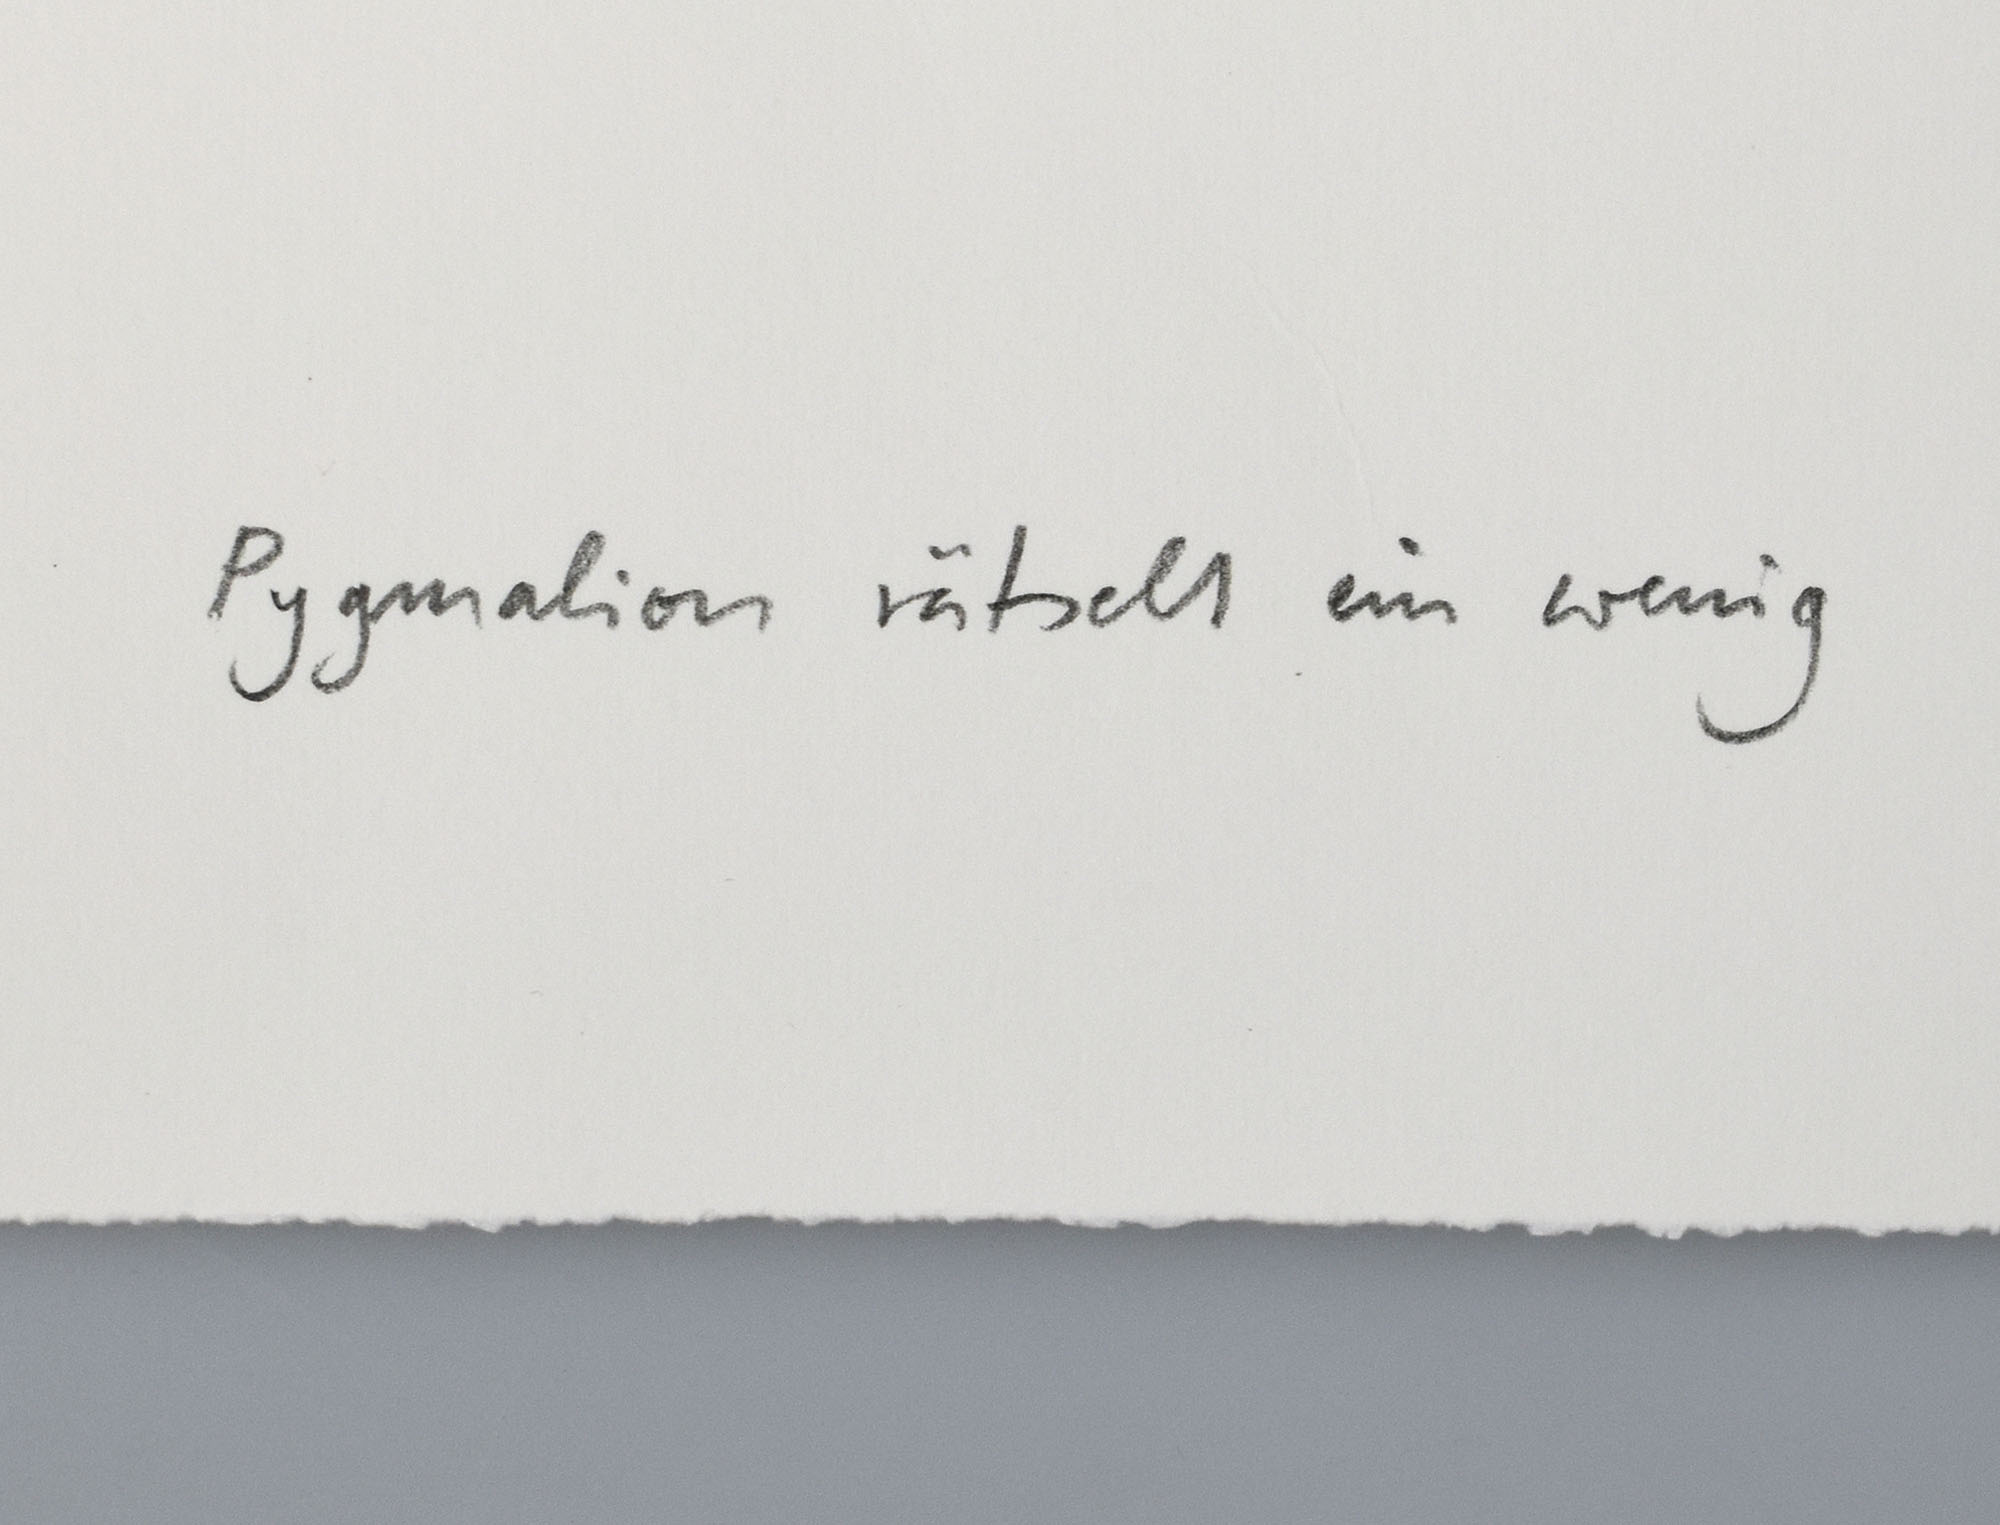 Pygmalion rätselt ein wenig